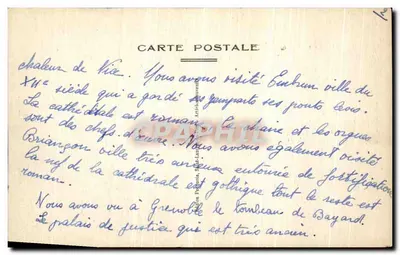 CARTE POSTALE
chaleur de Nice. Nous avons visité Embrun ville du
XIIe siècle qui a gardé ses remparts ses ponts levis.
La cathédrale est romane. La chaire et les orgues
sont des chefs d'œuvre. Nous avons également visité
Briançon ville très ancienne entourée de fortifications
la nef de la cathédrale est gothique tout le reste est
roman.
Nous avons vu à Grenoble le tombeau de Bayard.
Le palais de justice qui est très ancien.